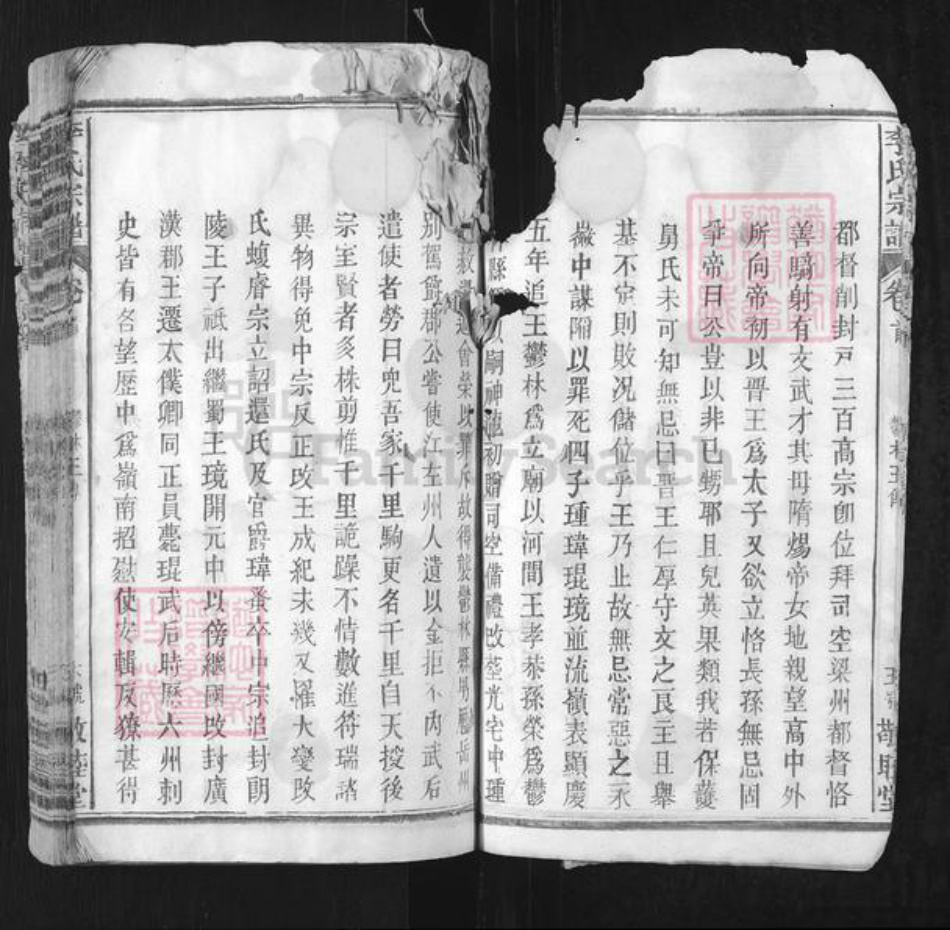 郡督削封戸三百高宗卽位拜司空梁州都督恪
善騎射有文武才其毋隋煬帝女地親望高中外
所向帝初以晋王爲太子又欲立恪長孫無忌固
爭帝曰公豈以非已甥耶且兒英果類我若保護
舅氏未可知無忌曰晋王仁厚守文之良主且舉
基不定則敗况儲位乎王乃止故無忌常惡之永
徽中謀陏以罪死四子瑾瑋琨璄並流嶺表顯慶
五年追王鬱林爲立廟以河間王孝恭孫榮爲鬱
縣嗣神龍初贈司空備禮改塟光宅中瑾
榮以罪斥故得襲鬱林縣岳州
别駕郡公嘗使江左州人遺以金拒不內武后
遣使者勞曰兜吾家千里駒更名千里自天授後
宗室賢者多株剪惟千里詭躁不情數進符瑞諸
異物得免中宗反正改王成紀未幾又懼大變改
氏蝮膚宗立詔還氏及官爵瑋蚤卒中宗追封朗
陵王子祇出繼蜀王璄開元中以傍繼國改封廣
漢郡王遷太僕卿同正員薨琨武后時歷六州刺
史皆有名望歷中爲嶺南招慰使安輯反獠甚得
李氏宗譜
卷首
敬睦堂